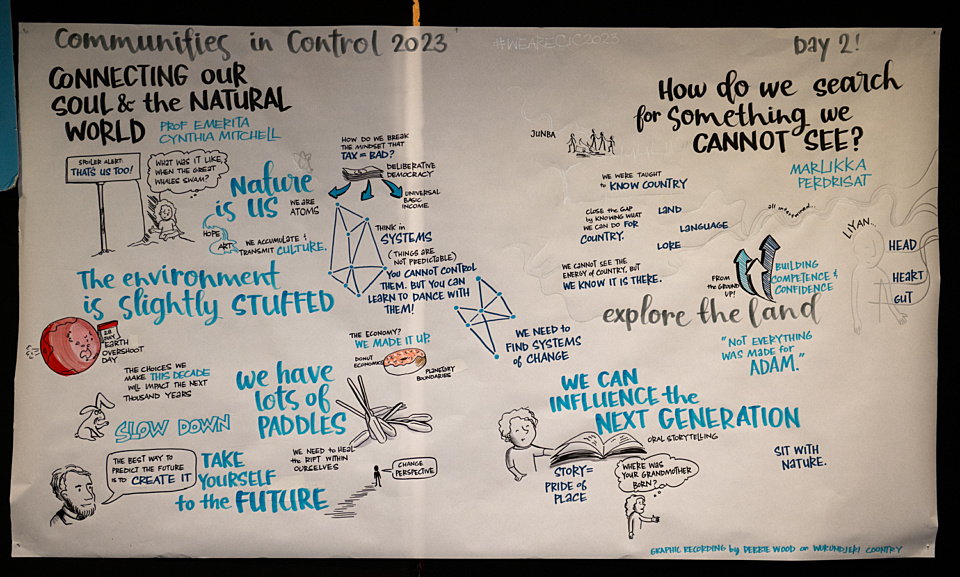 Communities in Control 2023
#WEARECIC2023
Day 2!
CONNECTING OUR
SOUL & the NATURAL
WORLD
PROF EMERITA
CYNTHIA MITCHELL
SPOILER ALERT:
THAT'S US TOO!
WHAT WAS IT LIKE,
WHEN THE GREAT
WHALES SWAM?
Nature
is US
WE ARE
ATOMS
HOPE
ART
WE ACCUMULATE &
TRANSMIT CULTURE.
HOW DO WE BREAK
THE MINDSET THAT
TAX = BAD?
DELIBERATIVE
DEMOCRACY
UNIVERSAL
BASIC
INCOME
THINK in
SYSTEMS
(THINGS ARE
NOT PREDICTABLE)
YOU CANNOT CONTROL
THEM. BUT YOU CAN
LEARN TO DANCE WITH
THEM!
The environment
is slightly STUFFED
28
JULY
EARTH
OVERSHOOT
DAY
THE CHOICES WE
MAKE THIS DECADE
WILL IMPACT THE NEXT
THOUSAND YEARS
SLOW DOWN
we have
lots of
PADDLES
THE ECONOMY?
WE MADE IT UP.
DONUT
ECONOMICS
PLANETARY
BOUNDARIES
WE NEED TO
FIND SYSTEMS
of CHANGE
THE BEST WAY TO
PREDICT THE FUTURE
IS to CREATE IT
TAKE
YOURSELF
to the FUTURE
WE NEED TO HEAL
the RIFT WITHIN
OURSELVES
CHANGE
PERSPECTIVE
How do we search
for something we
CANNOT SEE?
MARLIKKA
PERDRISAT
JUNBA
WE WERE TAUGHT
to KNOW COUNTRY
CLOSE the GAP
by KNOWING WHAT
WE CAN DO FOR
COUNTRY.
LAND
LANGUAGE
LORE
WE CANNOT SEE THE
ENERGY OF COUNTRY, BUT
WE KNOW IT IS THERE.
FROM the
GROUND
UP!
BUILDING
COMPETENCE &
CONFIDENCE
LIYAN.
HEAD
HEART
GUT
explore the land
"NOT EVERYTHING
WAS MADE for
ADAM."
WE CAN
INFLUENCE the
NEXT GENERATION
ORAL STORYTELLING
STORY=
PRIDE of
PLACE
WHERE WAS
YOUR GRANDMOTHER
BORN?
SIT WITH
NATURE.
GRAPHIC RECORDING by DEBBIE WOOD on WURUNDJERI COUNTRY